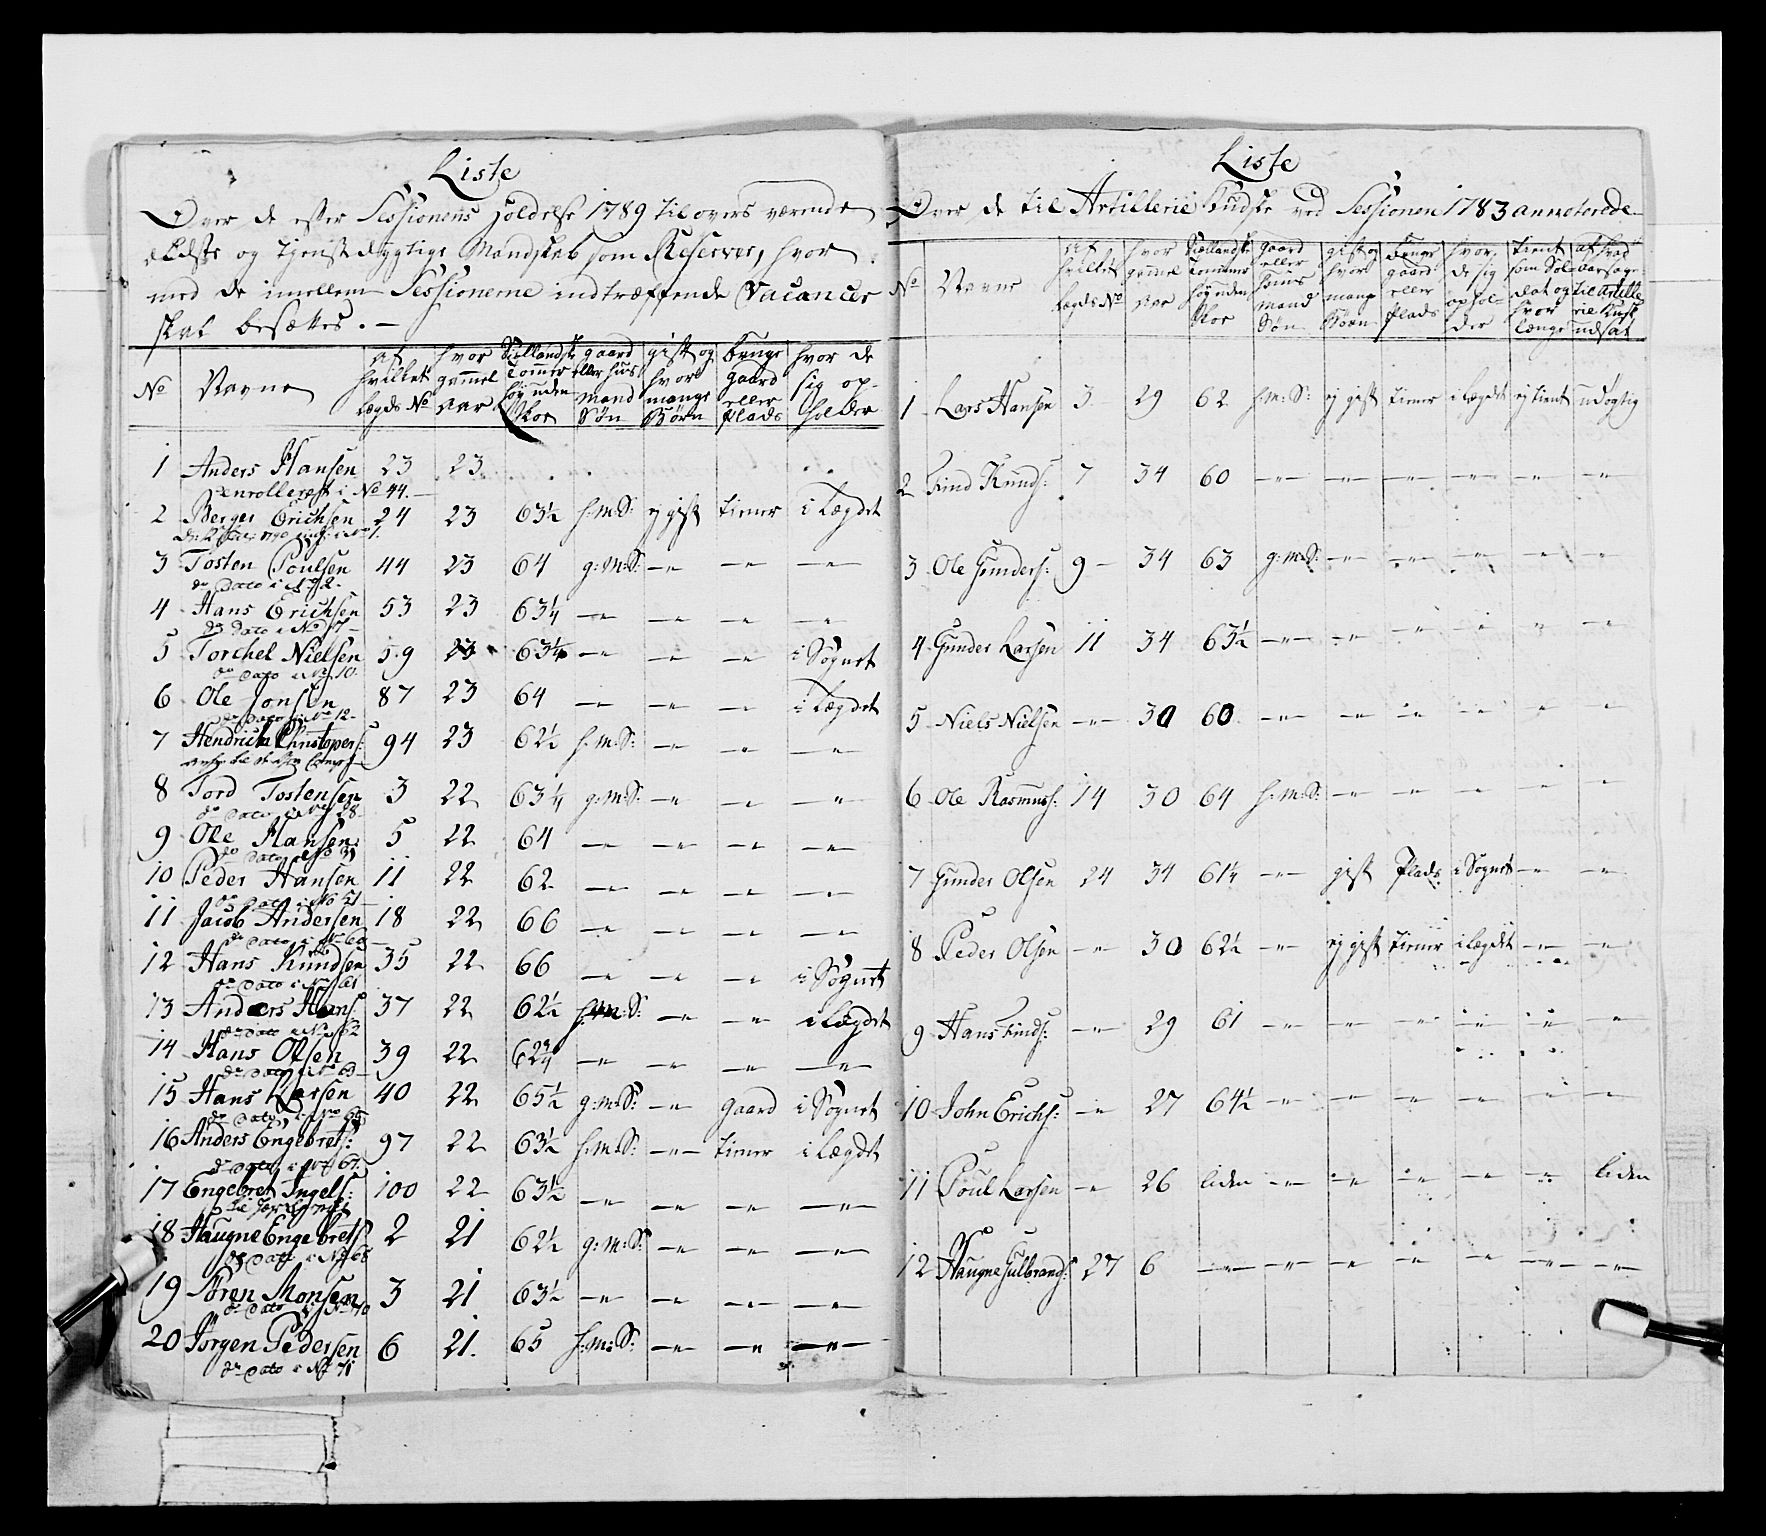 Liste
Over de efter Sessionens Holdelse 1789 til overs værende
ældste og tjenstdygtige Mandskab som Reserver, hvor
med de imellem Sessionerne indtræffende Vacancer
skal besættes. —
No | Navne | af hvilket Lægds No | hvor gammel Aar | Siællandske Tommer høy uden Skoe | gaard eller huus mand Søn | gift og hvor mange Børn | bruger gaard eller Plads | hvor de sig op- holder
1 Anders Hansen 23 23
enrolleret i No 44. —
2 Berger Erichsen 24 23 63½ h:m:S: ej gift tiener i Lægdet
3 Tosten Poulsen 44 23 64 g:m:S: —"— —"— —"—
do Dato i No 2.
4 Hans Erichsen 53 23 63¼ —"— —"— —"— —"—
do Dato i No 7 —
5 Torchel Nielsen 59 23 63¼ —"— —"— —"— i Sognet
do Dato i No 10.
6 Ole Jonsen 87 23 64 —"— —"— —"— i Lægdet
do Dato i No 12.
7 Hendrich Christophers: 94 23 62½ h:m:S: —"— —"— —"—
8 Tord Tostensen 3 22 63¼ g:m:S: —"— —"— —"—
do Dato i No 28
9 Ole Hansen 5 22 64 —"— —"— —"— —"—
do Dato i No 31
10 Peder Hansen 11 22 62 —"— —"— —"— —"—
do Dato i No 51 —
11 Jacob Andersen 18 22 66 —"— —"— —"— —"—
do Dato i No 60 —
12 Hans Knudsen 35 22 66 —"— —"— —"— i Sognet
do Dato i No 61
13 Anders Hans: 37 22 62½ h:m:S: —"— —"— i Lægdet
do Dato i No 62
14 Hans Olsen 39 22 62¾ —"— —"— —"— —"—
do Dato i No 63 —
15 Hans Larsen 40 22 65½ g:m:S: —"— gaard i Sognet
do Dato i No 66
16 Anders Engebrets: 97 22 63½ h:m:S: —"— tiener i Lægdet
do Dato i No 67.
17 Engebret Ingels: 100 22 63½ —"— —"— —"— —"—
18 Haugne Engebrets: 2 21 62½ g:m:S: —"— —"— —"—
do Dato i No 68
19 Søren Monsen 3 21 63½ —"— —"— —"— —"—
do Dato i No 70
20 Jørgen Pedersen 6 21. 65 h:m:S: —"— —"— —"—
do Dato i No 71
Liste
Over de til Artillerie Kudske ved Sessionen 1783 annoterede
No | Navne | af hvilket Lægds No | hvor gammel Aar | Siællandske Tommer høy uden Skoe | gaard eller Huus mand Søn | gift og hvor mange Børn | bruger gaard eller Plads | hvor de sig ophol- der | tient som Sol- dat og hvor længe | af hvad aarsage til Artille- rie Kusk udsat
1 Lars Hansen 3 29 62 h:m:S: ej gift tiener i Lægdet ej tient udygtig
2 Find Knuds: 7 34 60 —"— —"— —"— —"— —"— —"—
3 Ole Gunders: 9 — 34 63 g:m:S: —"— —"— —"— —"— —"—
4 Gunder Larsen 11 34 63½ —"— —"— —"— —"— —"— —"—
5 Niels Nielsen —"— 30 60 —"— —"— —"— —"— —"— —"—
6 Ole Rasmus: 14 30 64 h:m:S: —"— —"— —"— —"— —"—
7 Gunder Olsen 24 34 61¼ —"— gift Plads: i Sognet —"— —"—
8 Peder Olsen —"— 30 62½ —"— ej gift tiener i Lægdet —"— —"—
9 Hans Finds: —"— 29 61 —"— —"— —"— —"— —"— —"—
10 John Erichs: —"— 27 64½ —"— —"— —"— —"— —"— —"—
11 Poul Larsen —"— 26 liden —"— —"— —"— —"— —"— liden
12 Haugne Gulbrands: 27 6 —"— —"— —"— —"— —"— —"— —"—